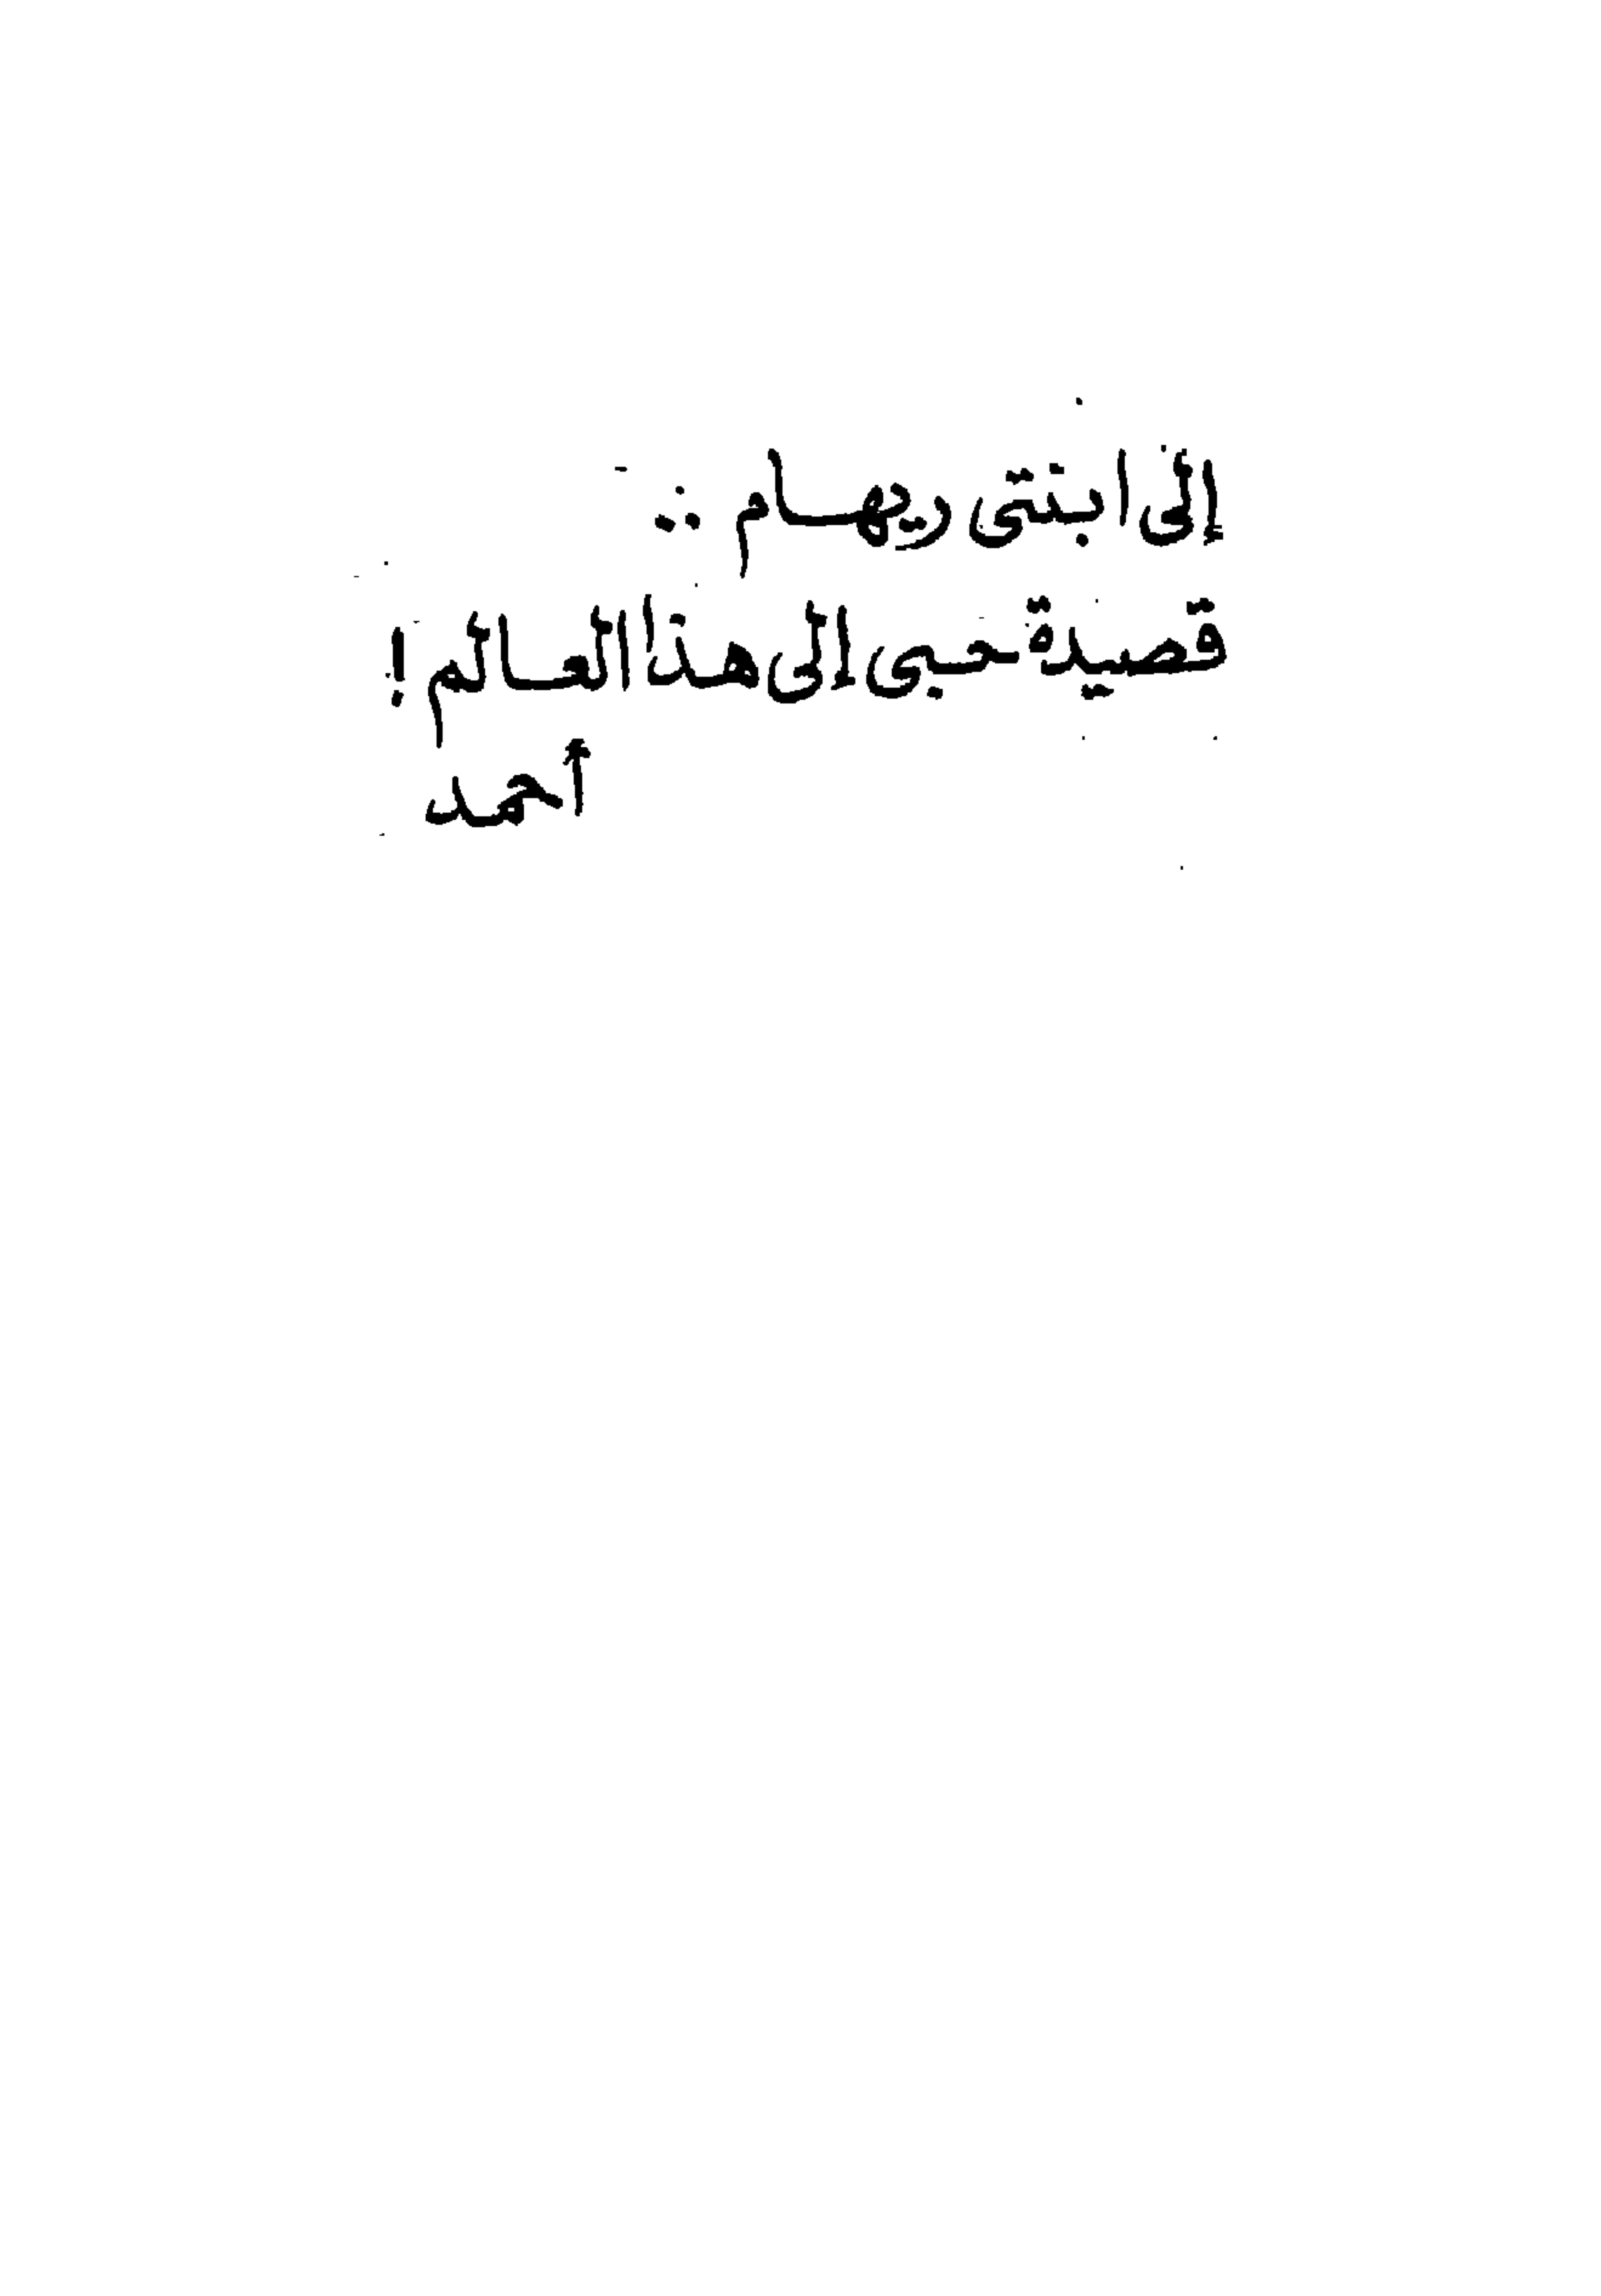 إلى ابنتى ريهام ..
قصيدة حبى إلى هذا العالم !
أحمد